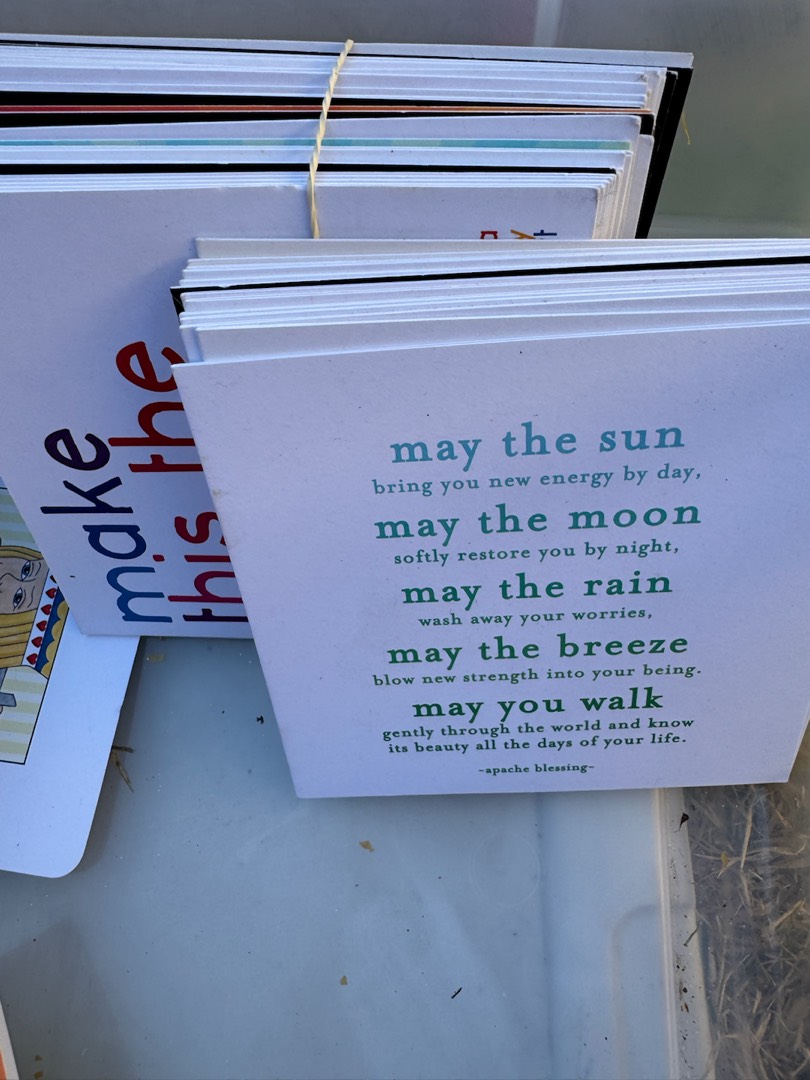 make
this the
may the sun
bring you new energy by day,
may the moon
softly restore you by night,
may the rain
wash away your worries,
may the breeze
blow new strength into your being.
may you walk
gently through the world and know
its beauty all the days of your life.
-apache blessing-